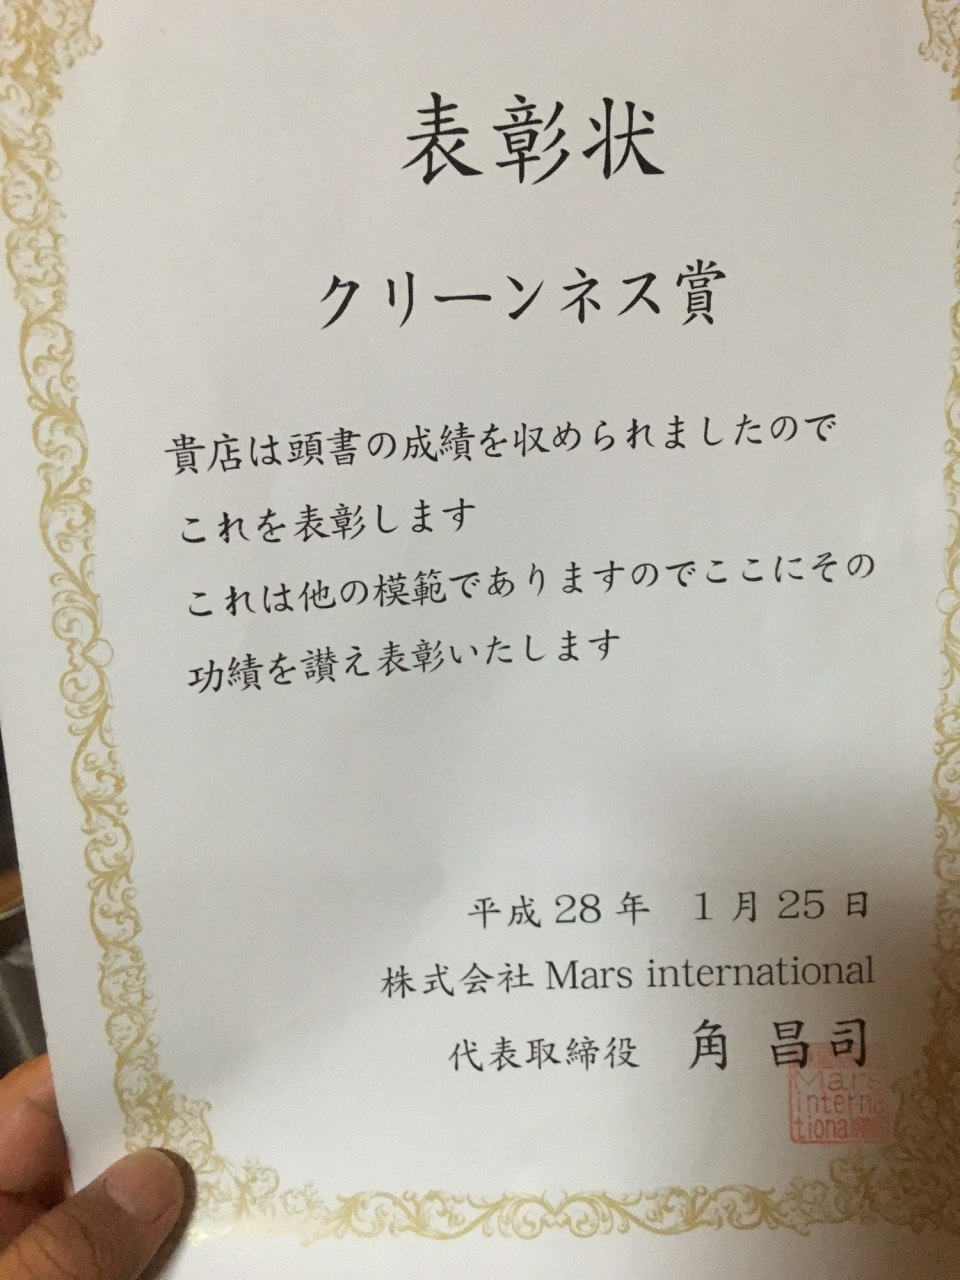 表彰状
クリーンネス賞
貴店は頭書の成績を収められましたので
これを表彰します
これは他の模範でありますのでここにその
功績を讃え表彰いたします
平成 28 年 1 月 25 日
株式会社 Mars international
代表取締役 角 昌司
Mars
interna
tional